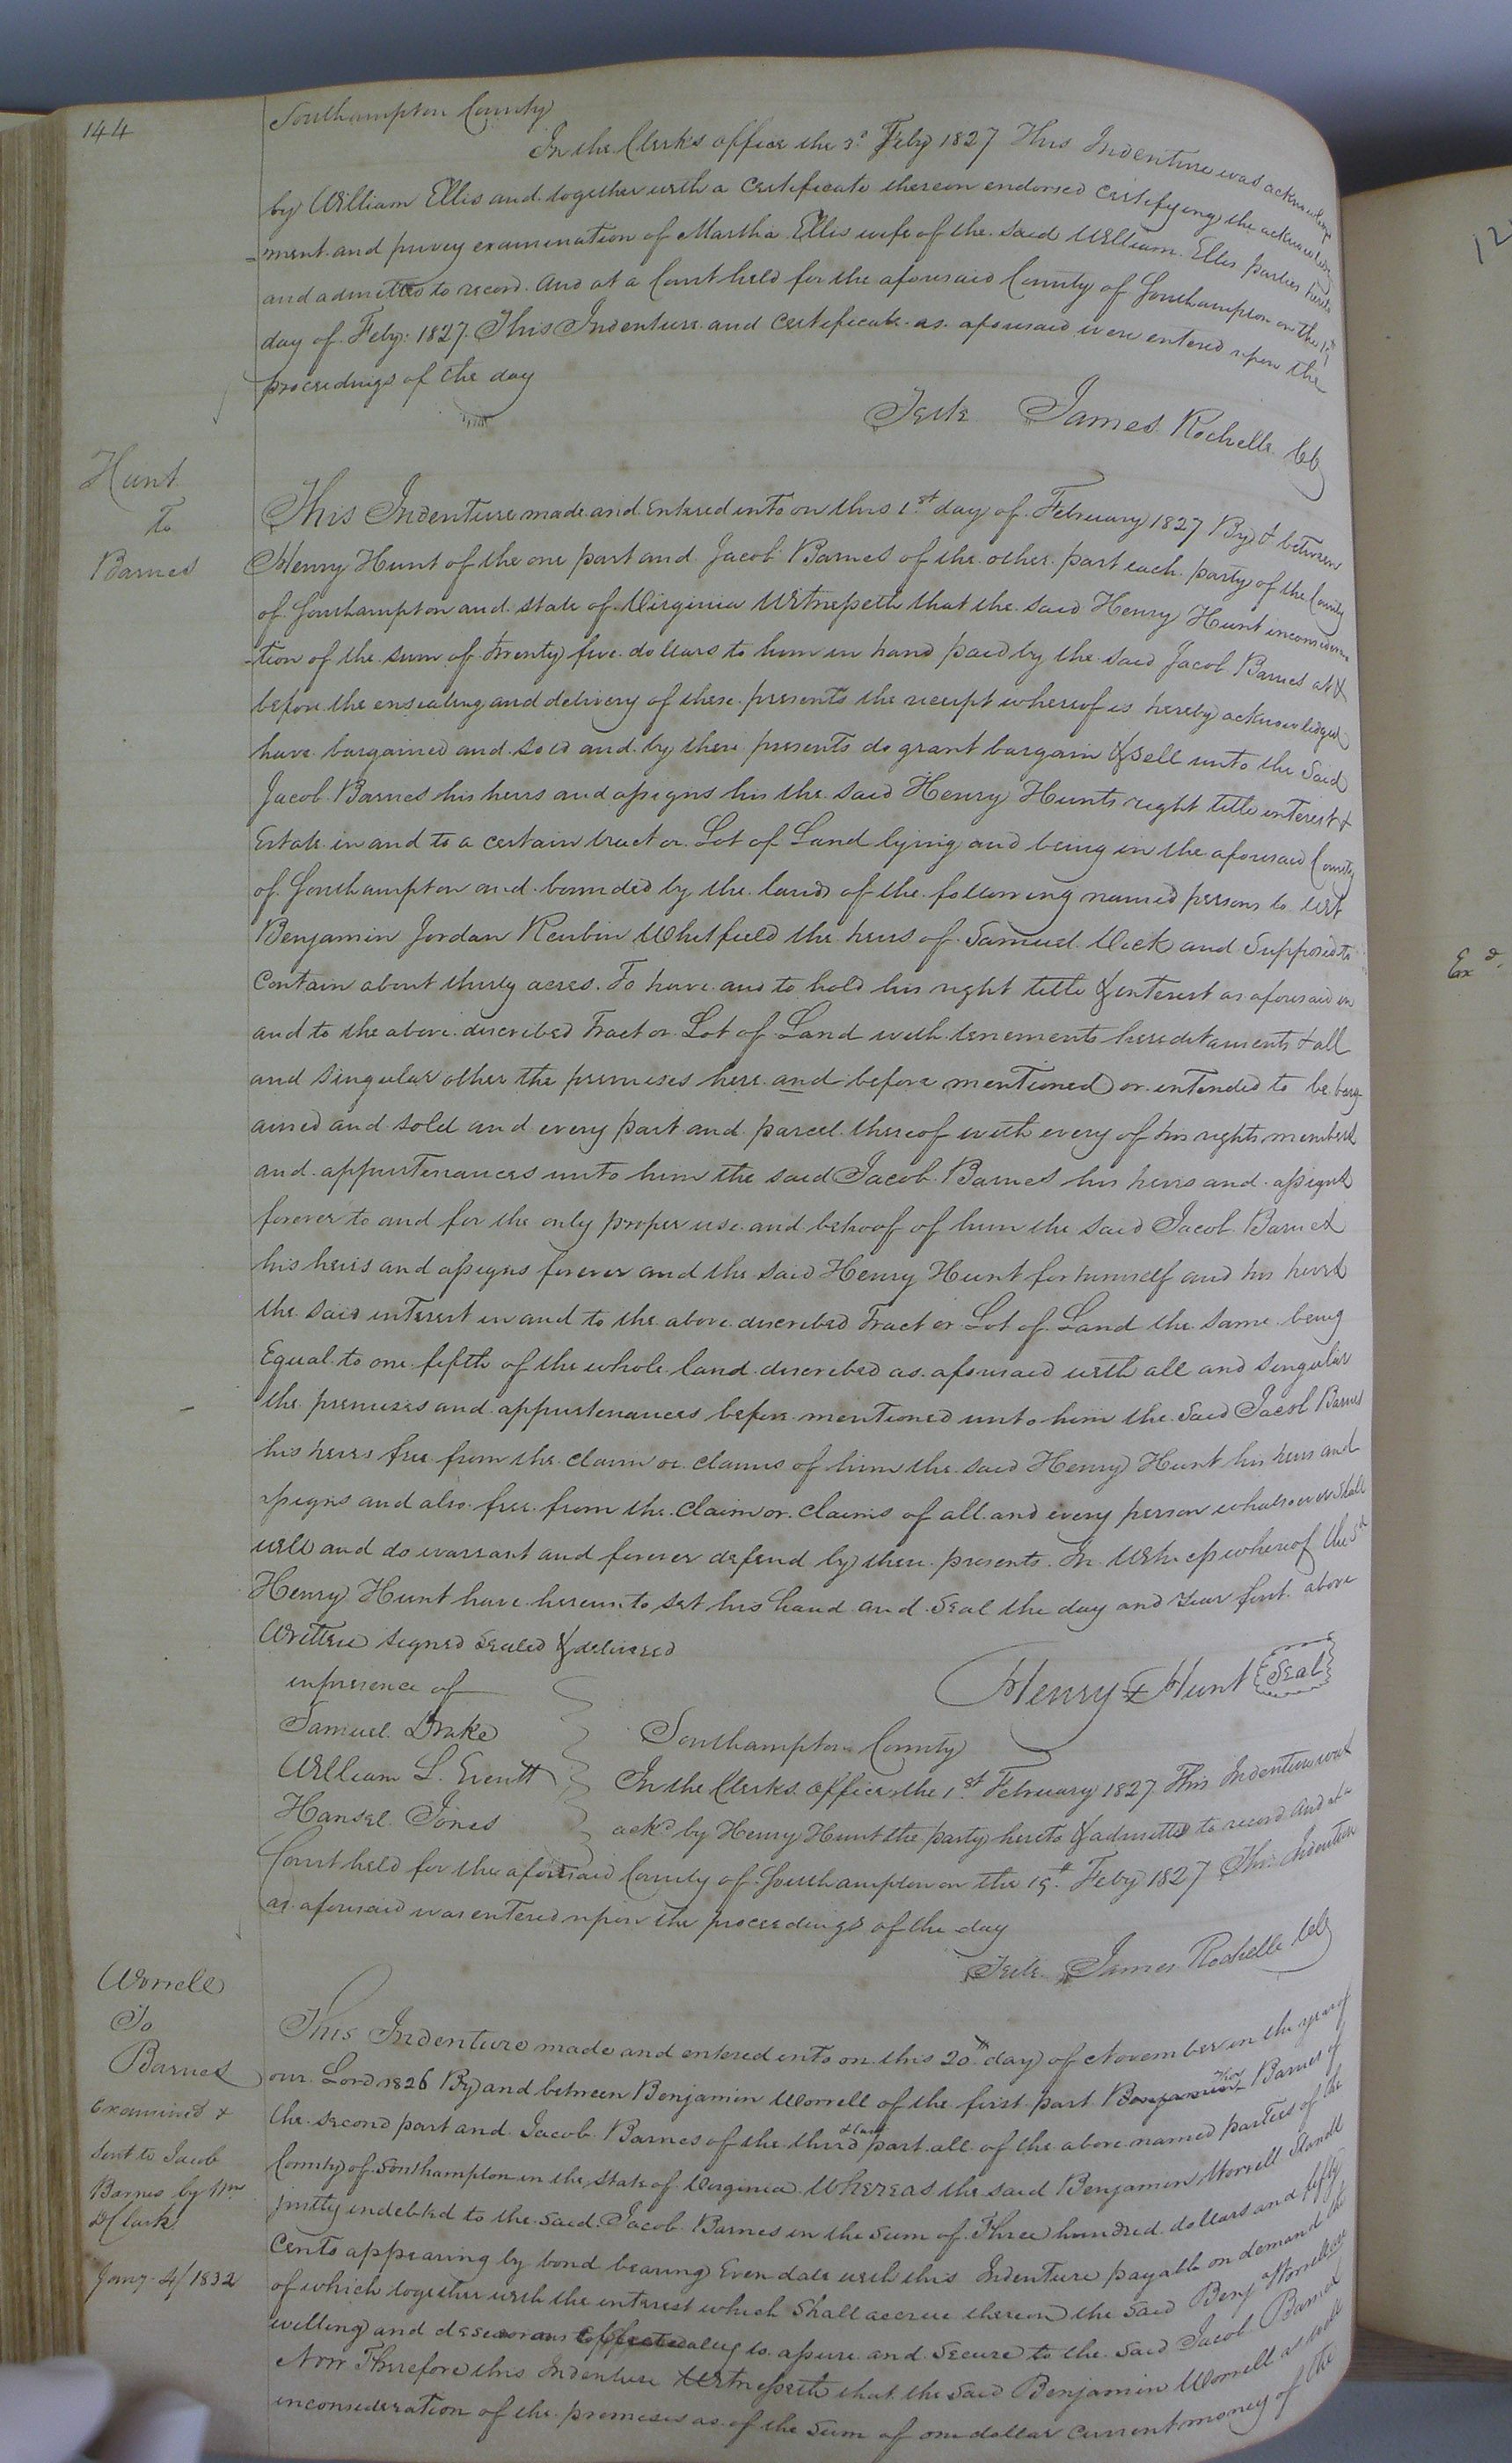 144
Southampton County
In the Clerks office the 3d Feby 1827 This Indenture was acknowledged
by William Ellis and together with a Certificate thereon endorsed certifying the acknowledg
-ment and privey examination of Martha Ellis wife of the said William Ellis parties hereto
and admitted to record. And at a Court held for the aforesaid County of Southampton on the 19th
day of Feby: 1827. This Indenture and Certificate as aforesaid were entered upon the
proceedings of the day
Teste James Rochelle CC
Hunt
To
Barnes
This Indenture made and Entered into on this 1st day of February 1827 By & between
Henry Hunt of the one part and Jacob Barnes of the other part each party of the County
of Southampton and state of Virginia Witnesseth that the said Henry Hunt in considera
-tion of the sum of twenty five dollars to him in hand paid by the said Jacob Barnes at &
before the ensealing and delivery of these presents the receipt whereof is hereby acknowledged
have bargained and sold and by these presents do grant bargain & sell unto the said
Jacob Barnes his heirs and assigns his the said Henry Hunts right title interest &
Estate in and to a certain tract or Lot of Land lying and being in the aforesaid County
of Southampton and bounded by the lands of the following named persons to wit
Benjamin Jordan Reubin Whitfield the heirs of Samuel Vick and Supposed to
Contain about thirty acres. To have and to hold his right title & interest as aforesaid in
and to the above described Tract or Lot of Land with tenements hereditaments & all
and singular other the premises here and before mentioned or intended to be barg
ained and sold and every part and parcel thereof with every of his rights members
and appurtenances unto him the said Jacob Barnes his heirs and assigns
forever to and for the only proper use and behoof of him the said Jacob Barnes
his heirs and assigns forever and the said Henry Hunt for himself and his heirs
the said interest in and to the above described Tract or Lot of Land the same being
Equal to one fifth of the whole land described as aforesaid with all and singular
the premises and appurtenances before mentioned unto him the said Jacob Barnes
his heirs free from the claim or claims of him the said Henry Hunt his heirs and
assigns and also free from the claim or claims of all and every person whatsoever shall
will and do warrant and forever defend by these presents. In Witness whereof the sd
Henry Hunt have hereunto set his hand and Seal the day and year first above
Written signed sealed & delivered
in presence of
Henry Hunt Seal
Samuel Drake
William L. Everitt
Hansel Jones
Southampton County
In the Clerks office the 1st February 1827. This Indenture was
ackd by Henry Hunt the party hereto & admitted to record And at a
Court held for the aforesaid County of Southampton on the 19th Feby 1827 This Indenture
as aforesaid was entered upon the proceedings of the day
Teste James Rochelle CC
Worrell
To
Barnes
Examined &
Sent to Jacob
Barnes by Wm
D Clark
Jany 4/1832
This Indenture made and entered into on this 20th day of November in the year of
our Lord 1826 By and between Benjamin Worrell of the first part Benjamin Barnes of
the second part and Jacob Barnes of the third part all of the above named parties of the
County of Southampton in the State of Virginia Whereas the said Benjamin Worrell Stands
justly indebted to the said Jacob Barnes in the sum of Three hundred dollars and fifty
Cents appearing by bond bearing Even date with this Indenture payable on demand the
of which together with the interest which shall accrue thereon the said Benj Worrell is
willing and desirous Effectually to assure and secure to the said Jacob Barnes
Now Therefore this Indenture Witnesseth that the said Benjamin Worrell as well
in consideration of the premises as of the sum of one dollar current money of the
Exd